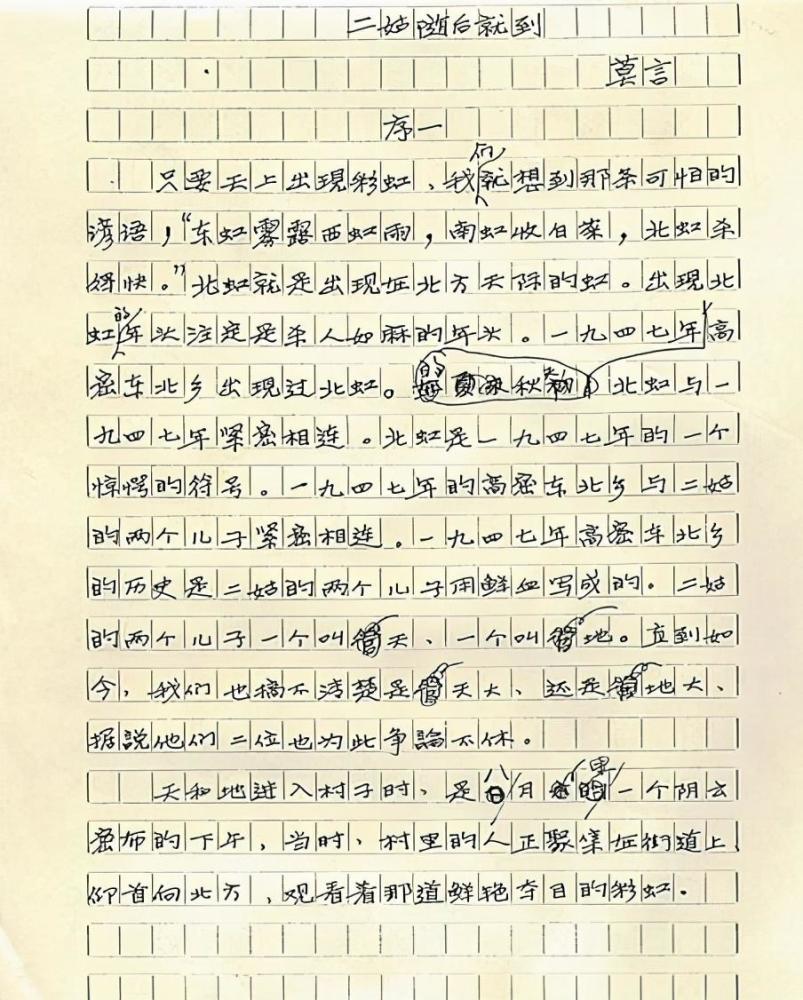 二姑随后就到
莫言
序一
只要天上出現彩虹、我们就想到那条可怕的
谚语，“东虹雾露西虹雨，南虹收白菜，北虹杀
得快。”北虹就是出现在北方天际的虹。出現北
虹的年头注定是杀人如麻的年头。一九四七年高
密东北乡出現过北虹。的秋北虹与一
九四七年紧密相连。北虹是一九四七年的一个
惊愕的符号。一九四七年的高密东北乡与二姑
的两个儿子紧密相连。一九四七年高密东北乡
的历史是二姑的两个儿子用鲜血写成的。二姑
的两个儿子一个叫天、一个叫地。直到如
今，我们也搞不清楚是天大、还是地大、
据説他们二位也为此争論不休。
天和地进入村子时、是八月里一个阴云
密布的下午，当时、村里的人正聚集在街道上
仰首向北方，观看着那道鲜艳夺目的彩虹。